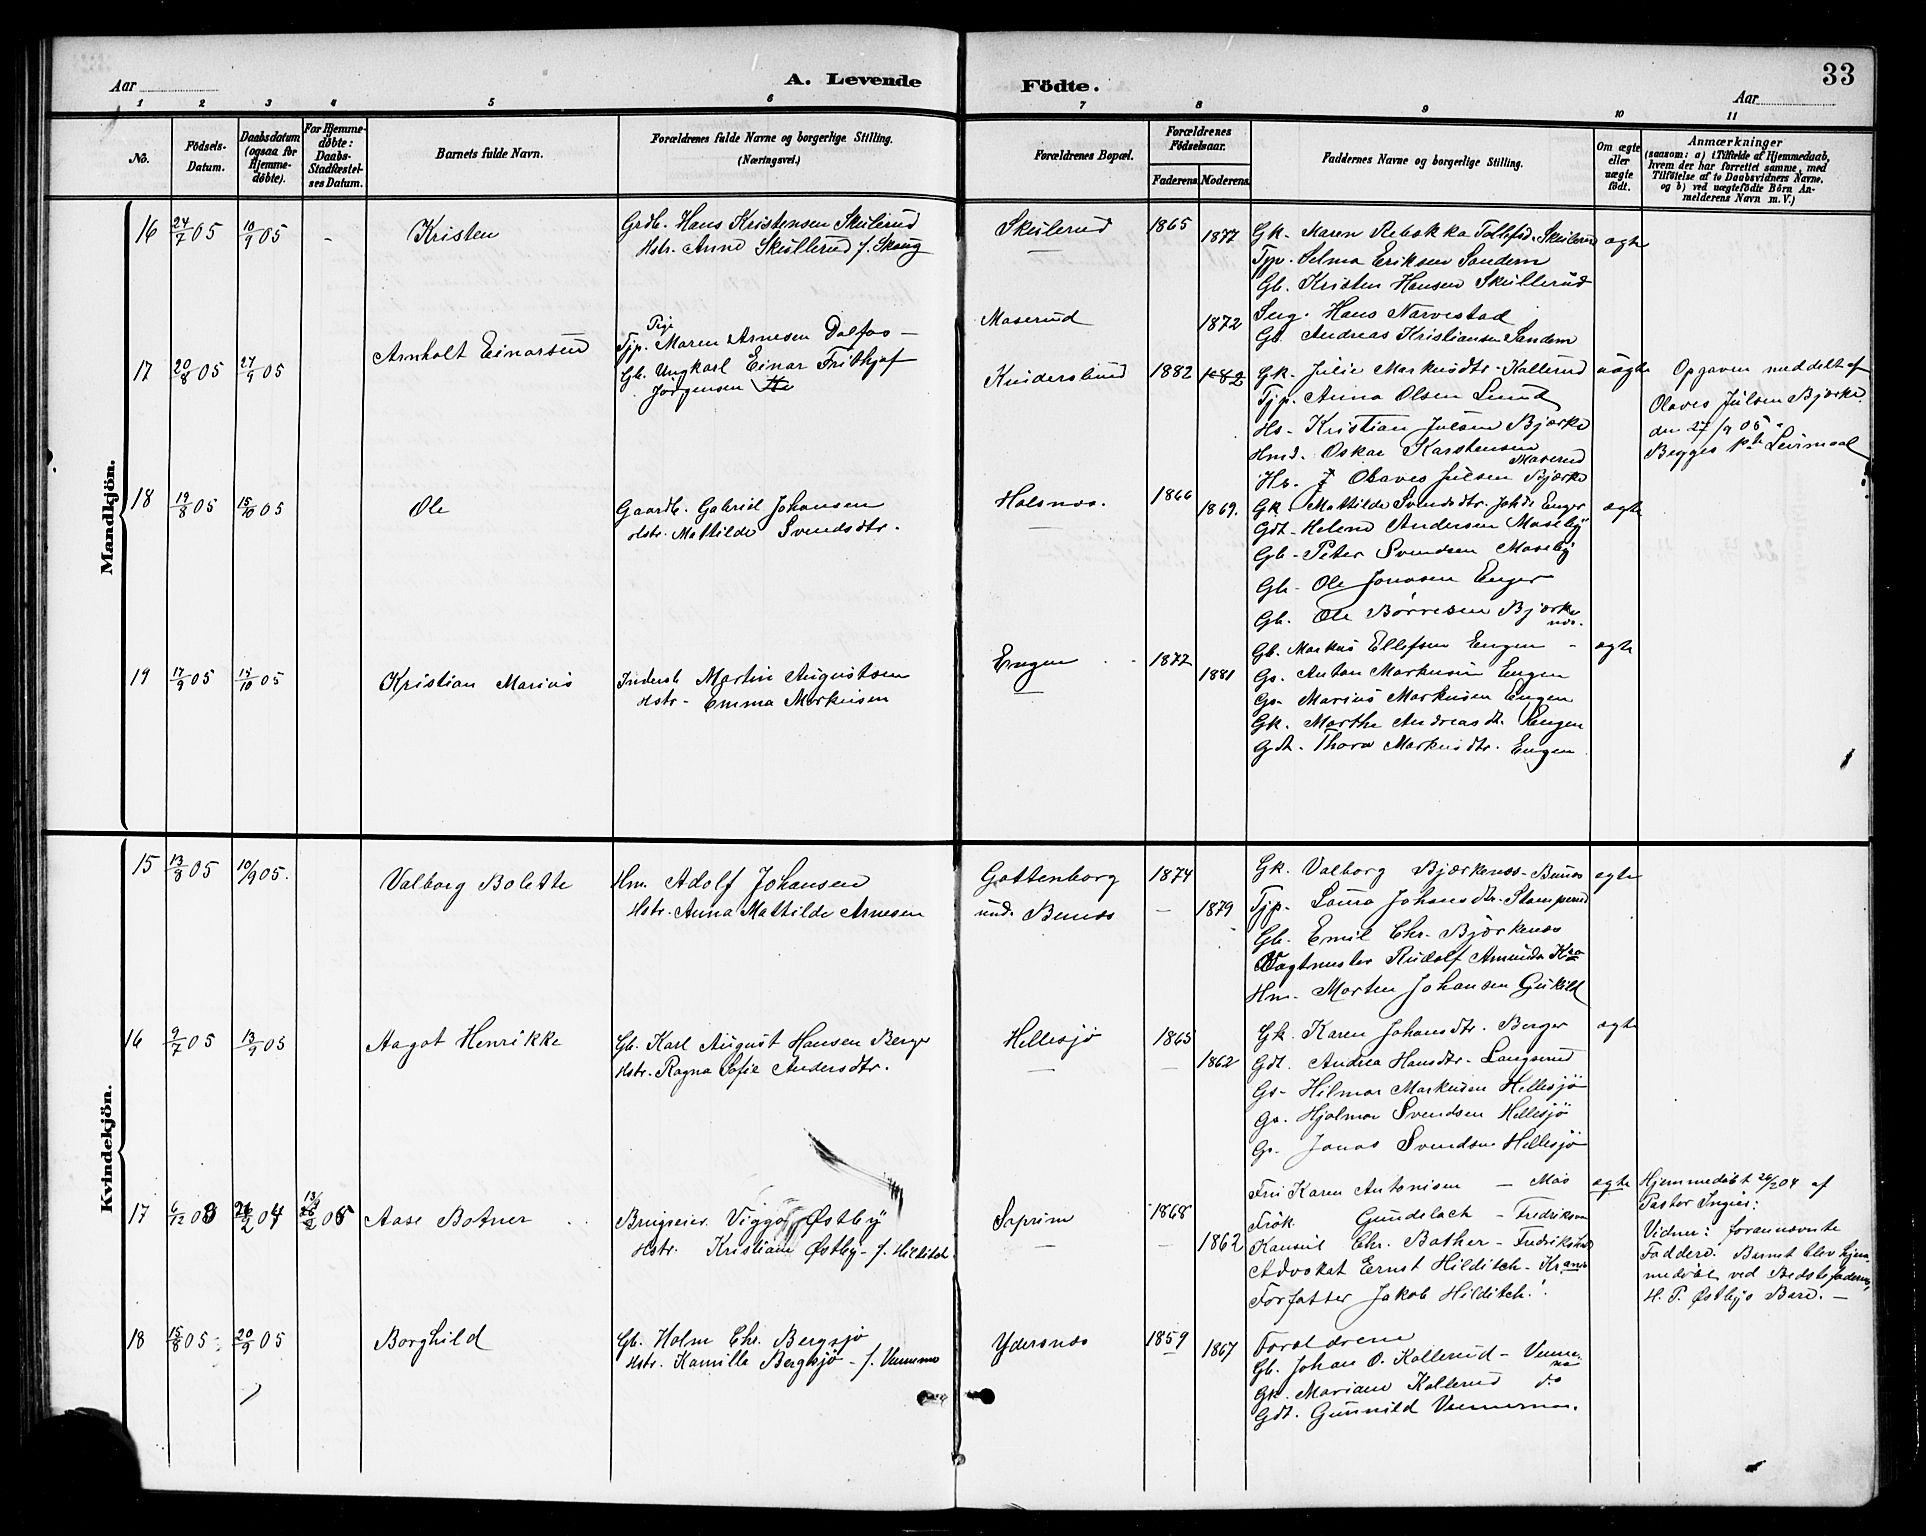 33
Aar
A. Levende
Födte.
Aar
1 2 3 4 5 6 7 8 9 10 11
No.
Födsels-Datum.
Daabsdatum (ogsaa for Hjemme-döbte).
For Hjemme-döbte: Daabs-Stadfæstel-ses Datum.
Barnets fulde Navn.
Forældrenes fulde Navne og borgerlige Stilling.
(Næringsvei.)
Forældrenes Bopæl.
Forældrenes Födselsaar.
Faderens Moderens
Faddernes Navne og borgerlige Stilling.
Om ægte eller uægte födt.
Anmærkninger
(saasom: a) i Tilfælde af Hjemmedaab,
hvem der har forrettet samme, med
Tilföielse af to Daabsvidners Navne,
og b) ved uægtefödte Börn An-
melderens Navn m. V.)
Mandkjön.
16 24/7 05 10/9 05 - Kristen
Grdb. Hans Kristensen Skullerud
Hstr. Anne Skullerud f. Skaug
Skullerud 1865 1877
Gk. Maren Rebekka Tollefsd. Skullerud ægte
Tjp. Selma Eriksen Sandem
Gb. Kristen Hansen Skullerud
Ung. Hans Narvestad
Gs. Andreas Kristiansen Sandem
17 20/8 05 27/9 05 Arnholt Einarsen
Pige
Tjp. Maren Arnesen Dalfos -
Gb. Ungkarl Einar Frithjof
Jörgensen
Maserud 1872
Kinderslund 1882 1882
Gk. Julie Markusdtr. Kallerud uægte
Tjp. Anna Olsen Lund
Hs- Kristian Julsen Bjerke
Hmd. Oskar Karstensen
Maserud
Hs. Olaves Julsen Bjerke
Opgaven meddelt af
Olaves Julsen Bjerke
den 27/9 05.
Begges 1ste Leirmaal
18 19/8 05 15/10 05 Ole
Gaardb. Gabriel Johansen
Hstr. Mathilde Svendsdtr.
Holsnæs. 1866 1869.
Gk. Mathilde Svendsdtr. Johs Enger ægte
Gdt. Helene Andersen Maseby
Gb- Peter Svendsen Maseby
Gb- Ole Jonasen Enger
Gb. Ole Børresen Bjerke
næs.
19 17/9 05 15/10 05 Kristian Marius
Inderst Martin Augustsen
Hstr- Emma Markusen
Engen 1872 1881
Gb. Markus Ellefsen Engen - ægte
Gs. Anton Markusen Engen
Gs- Marius Markusen Engen
Gk. Marthe Andreasdt. Engen
Gdt. Thora Markusdtr. Engen
Kvindekjön.
15 13/8 05 10/9 05. Valborg Bolette
Hm. Adolf Johansen
Hstr. Anna Mathilde Arnesen
Gottenborg
und. Bunæs
1874 1879
Gk. Valborg Bjerkenæs- Bunæs ægte
Tjp- Laura Johansdtr. Stamperud
Gb- Emil Chr. Bjørkenæs
Vagtmester Rudolf Amunds Kra
Hm. Morten Johansen Gukild
16 9/7 05 13/9 05 Aagot Henrikke
Gb. Karl August Hansen Berger
Hstr. Ragna Sofie Andersdtr.
Hellesjø 1865 1862
Gk. Karen Johansdtr. Berger ægte
Gdt. Andrea Hansdtr. Langerud
Gs- Hilmar Markusen Hellesjø
Gs. Hjalmar Svendsen Hellesjø
Gs. Jonas Svendsen Hellesjø
17 6/12 03 26/2 04 13/9 05 Aase Botner
Brugseier Viggo Østby
Hstr. Kristiane Østby- f. Hilditch.
Soprim 1868 1862
Fru Karen Antonisen - Mos ægte
Frøk. Gundelach - Fredriksva
Konsul Chr. Bather - Fredrikshald
Advokat Ernst Hilditch- Krania
Forfatter Jakob Hilditch.
Hjemmedøbt 26/2 04 af
Pastor Ingier:
Vidner: forannævnte
Faddere. Barnet blev hjem-
medøbt ved Bedstefaderen
H. P. Østbys Baare. -
18 15/8 05 20/9 05 Borghild
Gb. Holm Chr. Bergsjø
Hstr. Kamilla Bergsjø - f. Vennemo
Ydersnæs 1859 1867
Forældrene
Gb. Johan O. Kallerud - Venne-
næs
Gk. Mariane Kallerud do
Gdt. Gunnild Vennemoe.